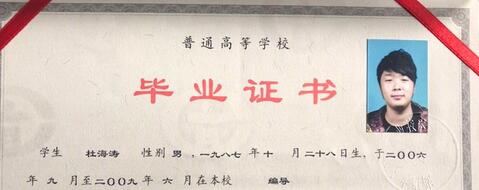 普通高等学校
毕业证书
学生 杜海涛 性别 男，一九八七年 十 月二十八日生，于二〇〇六
年 九 月至二〇〇九年 六 月在本校 编导